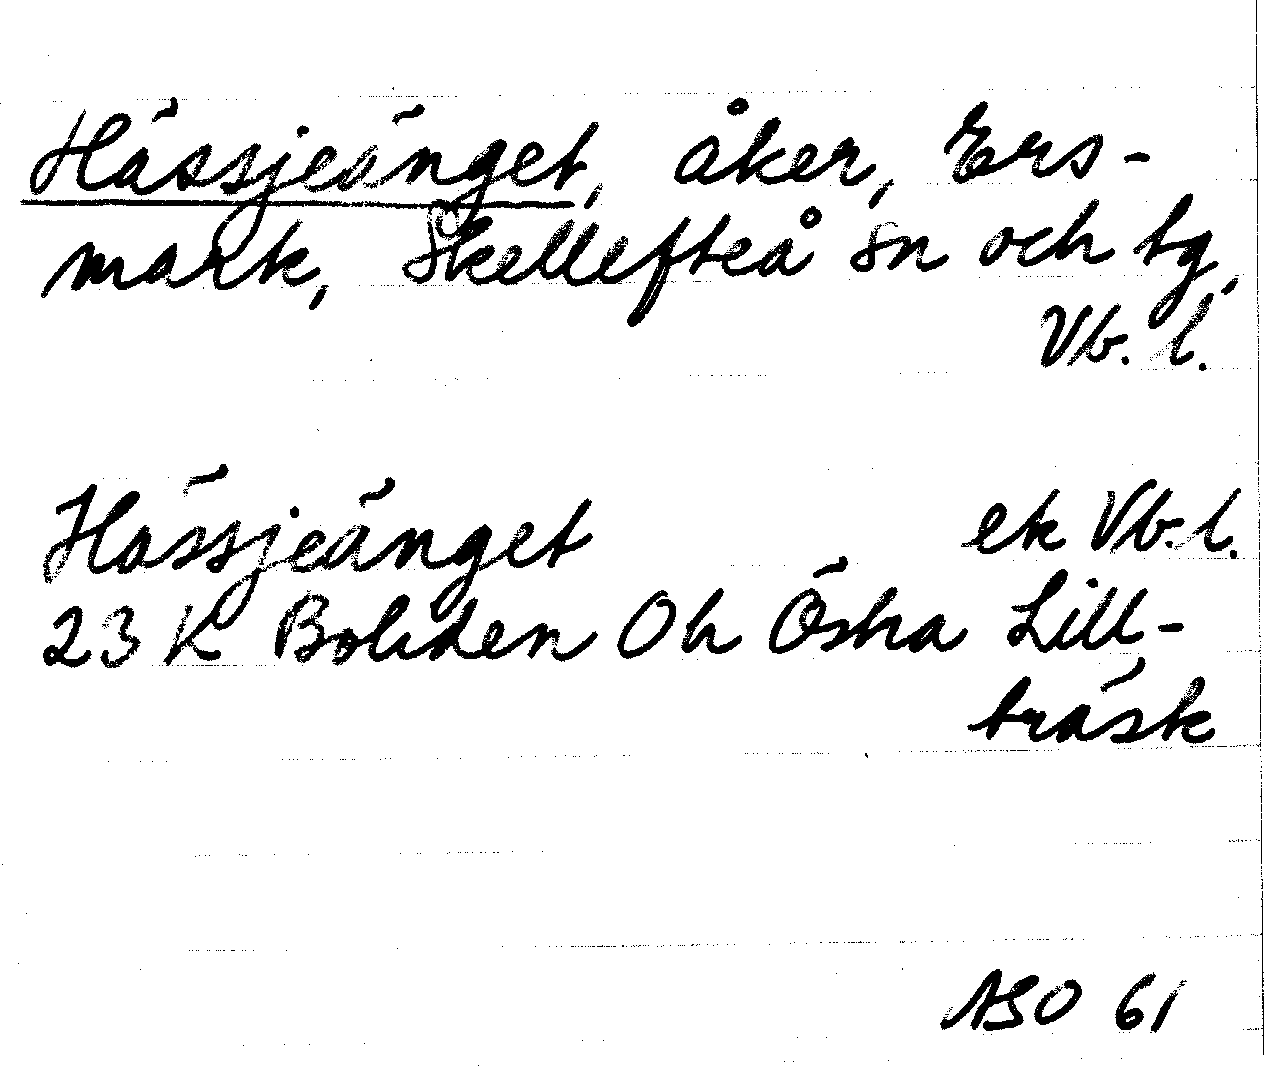 Hässjeänget, åker, Ers-
mark, Skellefteå sn och tg,
Vb. l.
Hässjeänget ek Vb. l.
23 K Boliden Oh Östra Lill-
träsk
ASO 61